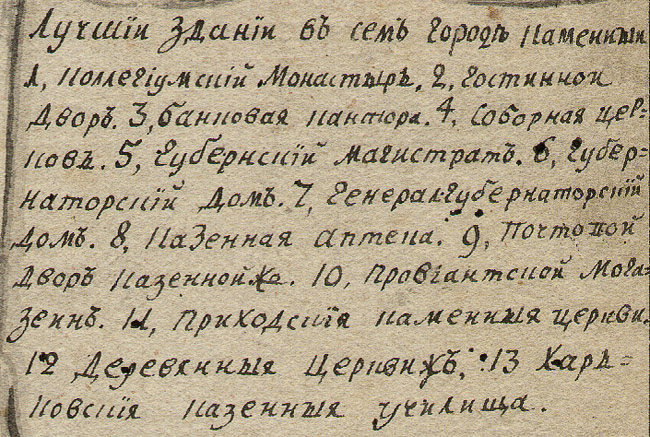 Лучшїи Зданїи въ семъ городѣ каменныи
1, Коллегїумскїй Монастырь. 2, Гостинной
Дворъ. 3, банковая кантора. 4, Соборная цер-
ковь. 5, Губернскїй магистратъ. 6, Губер-
наторскїй Домъ. 7, Генерал-Губернаторскїй
Домъ. 8, Казенная аптека. 9, Почтовой
Дворъ казеннойже. 10, Провїантской Мога-
зеинъ. 11, Приходскїя каменныя церкви.
12 Деревянныя Церквижъ, 13 Харь=
ковскїя казенныя училища.